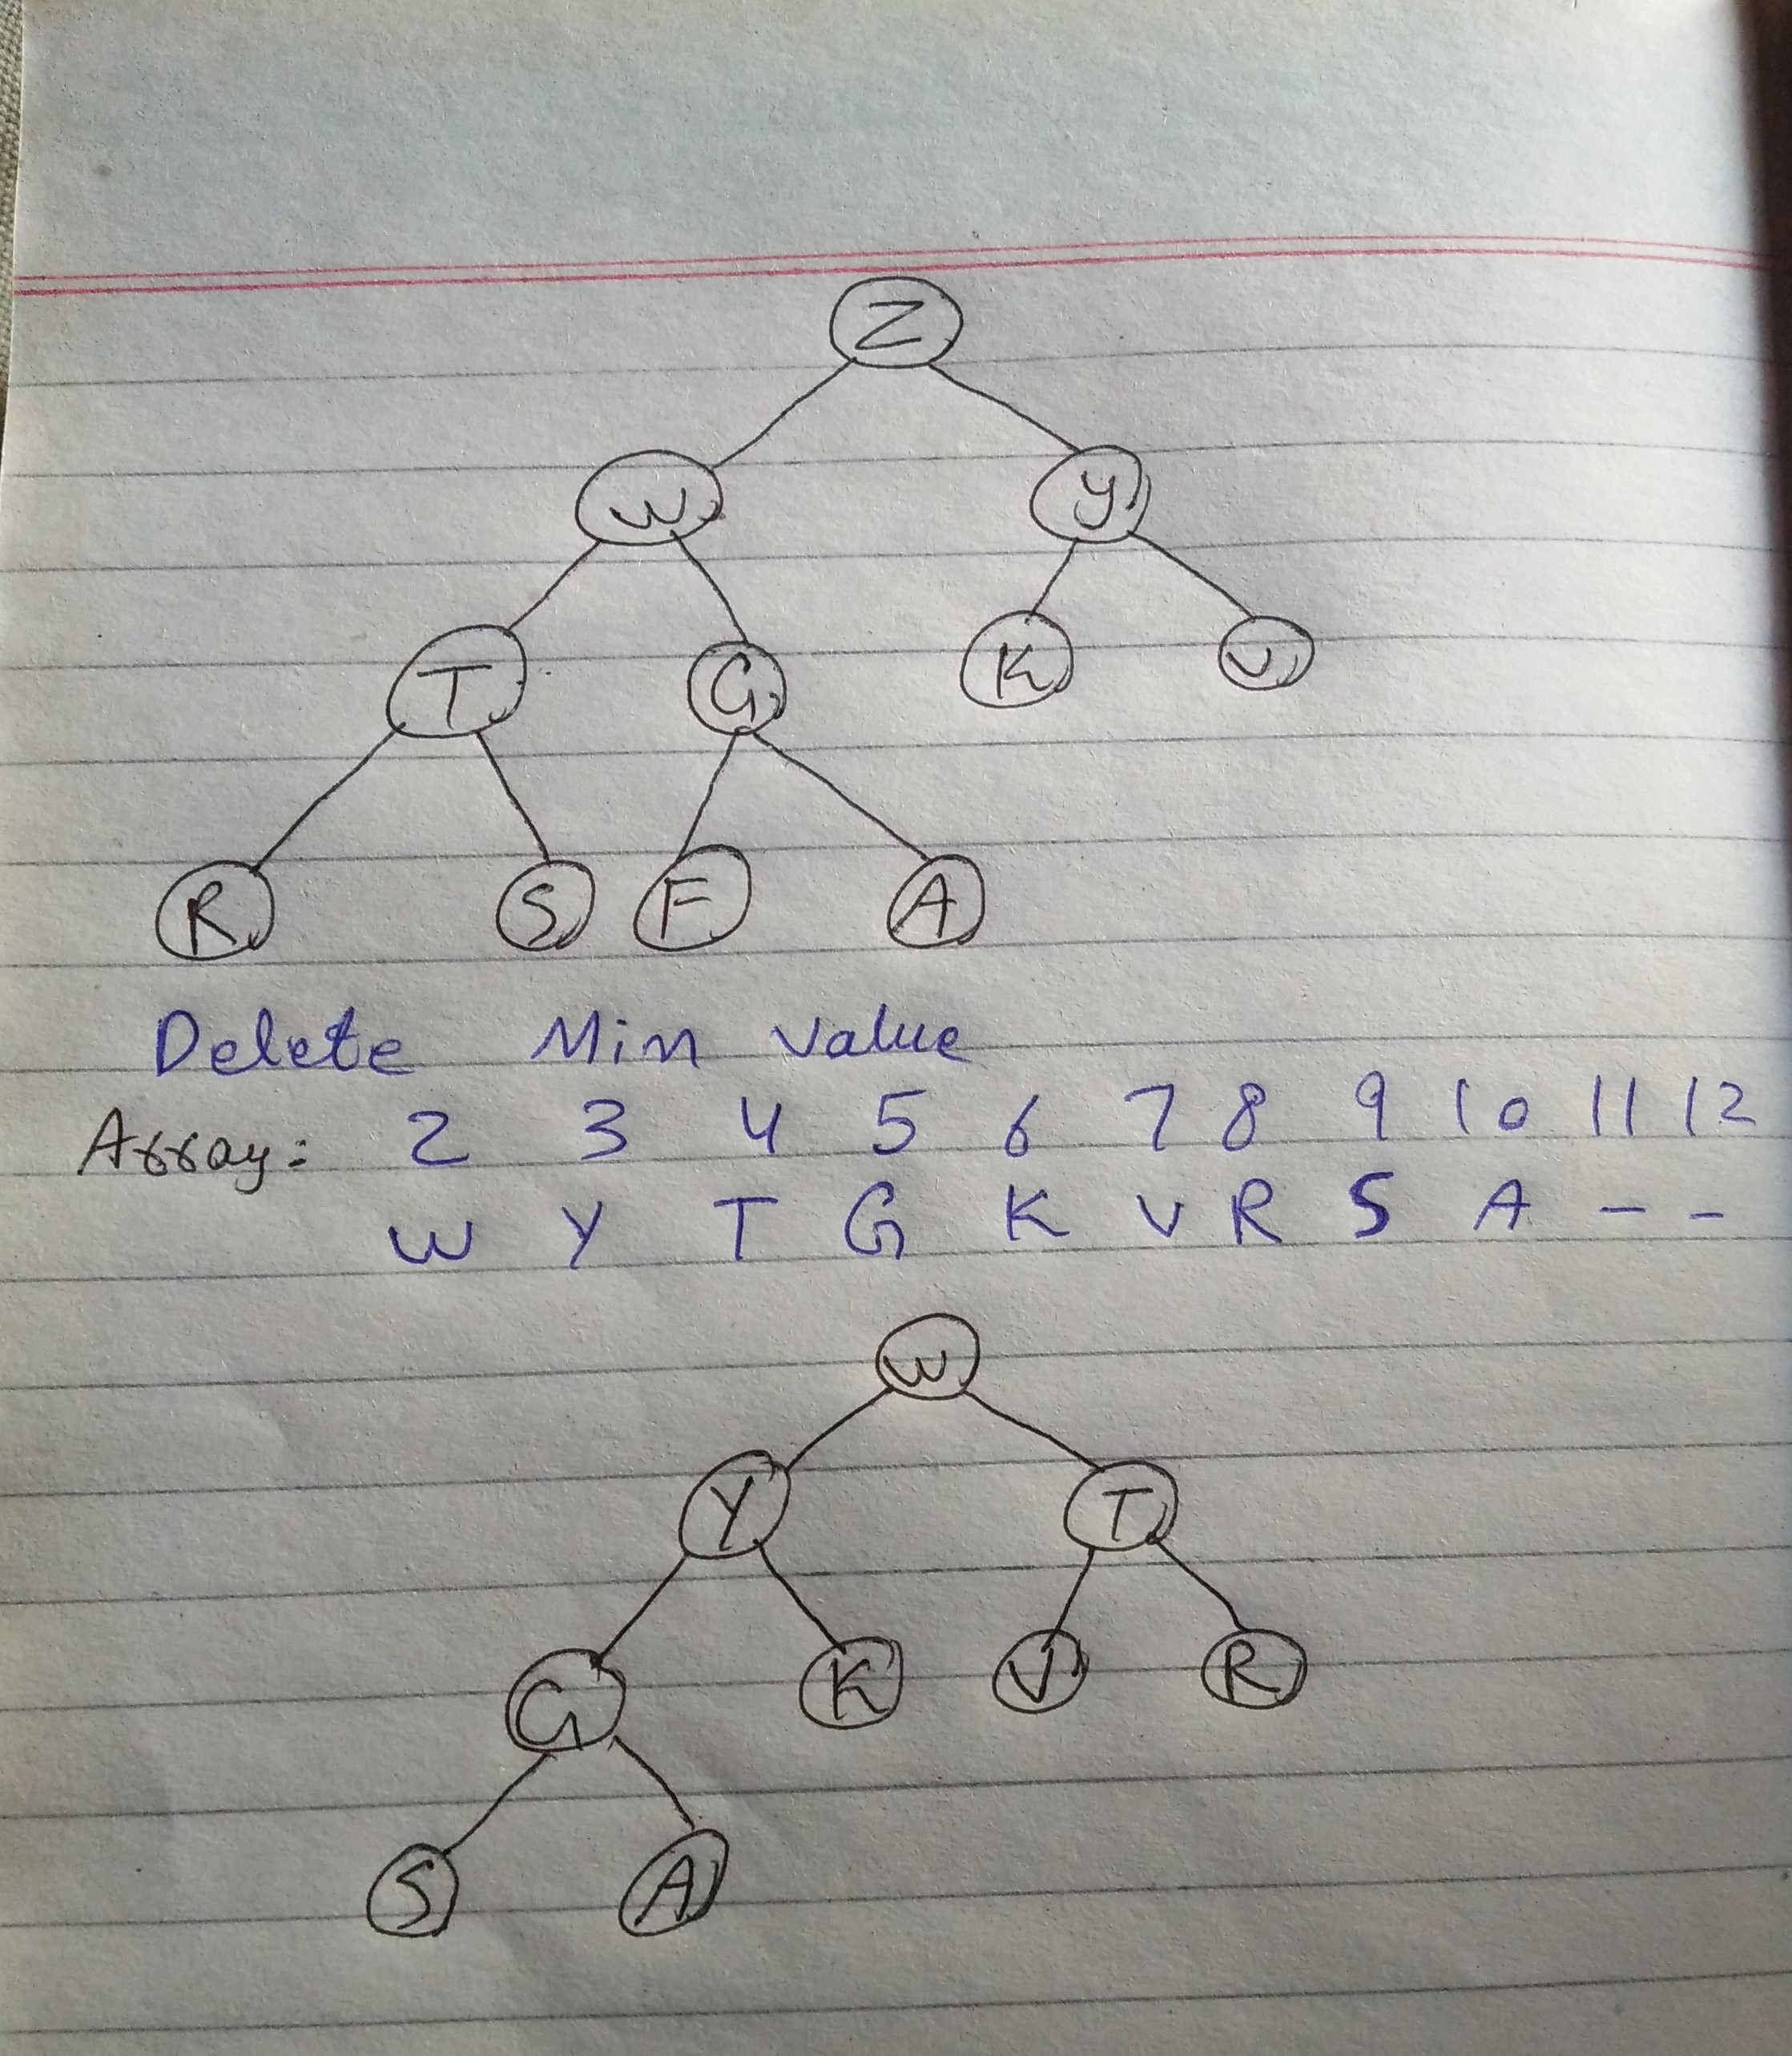 Z
W y
T G K V
R S F A
Delete Min Value
Array: 2 3 4 5 6 7 8 9 10 11 12
W Y T G K V R S A - -
W
Y T
G K V R
S A